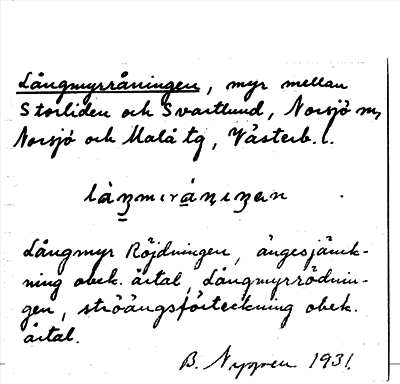 Långmyrråningen, myr mellan
Storliden och Svartlund, Norsjö sn,
Norsjö och Malå tg, Västerb. l.
Långmyr Röjdningen, ängesjämk-
ning obek. årtal, Långmyrrödnin-
gen, ströängsförteckning obek.
årtal.
B. Nygren 1931.